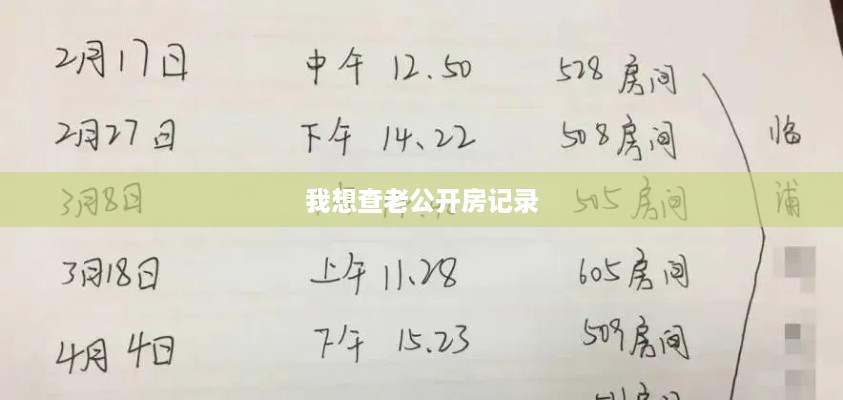 2月17日 中午 12.50 528 房间
2月27日 下午 14.22 508房间 临
我想查老公开房记录
3月8日 505房间 浦
3月18日 上午 11.28 605房间
4月4日 下午 15.23 509房间
房间